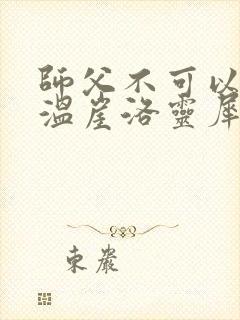 師父不可以
溫崖洛靈犀
東巖